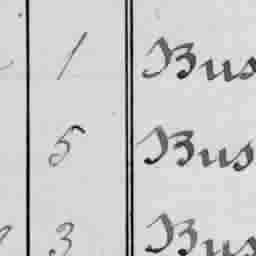 1 Bus
5 Bus
3 Bus